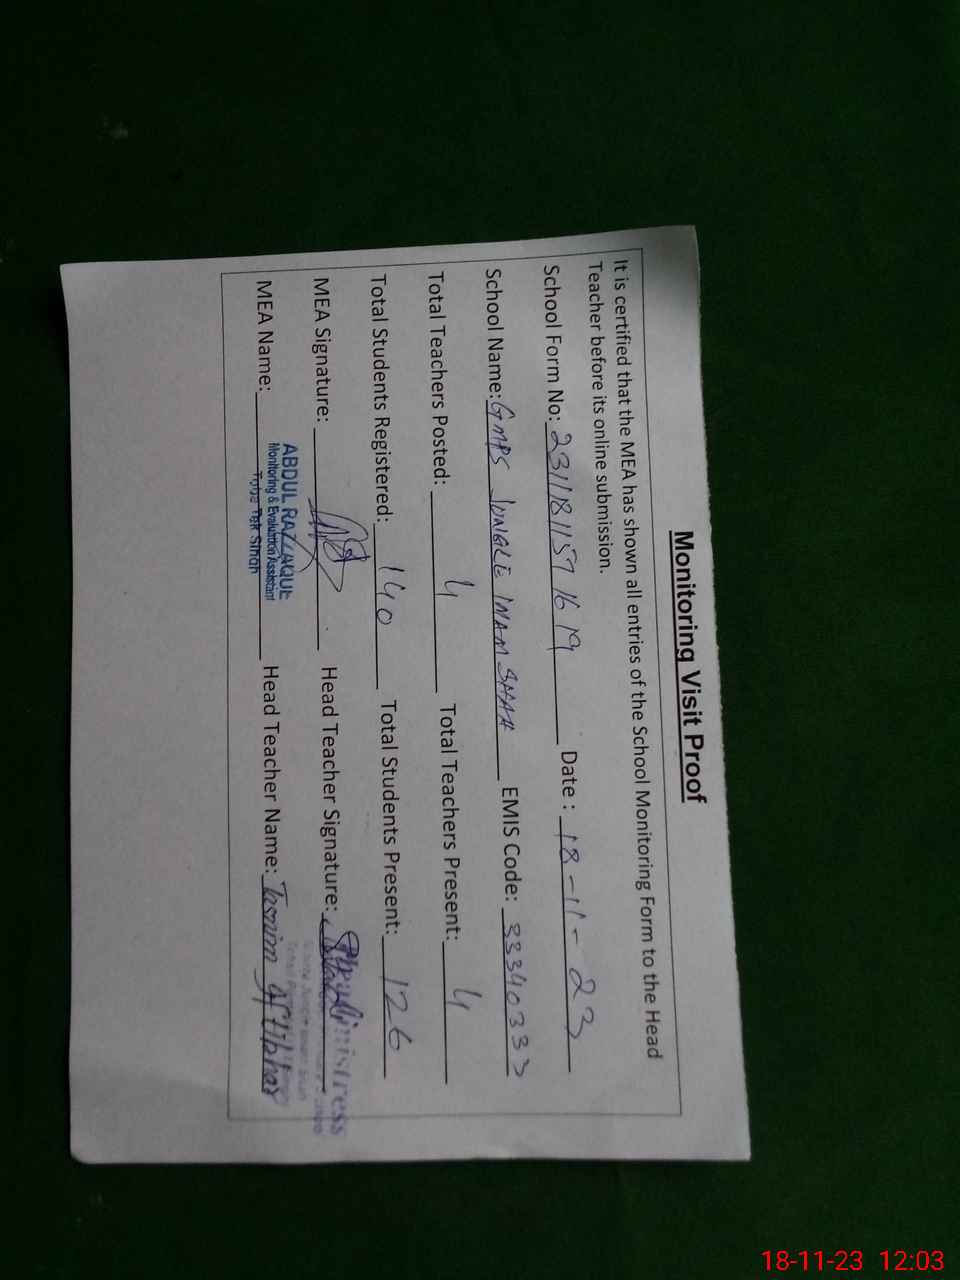 Monitoring Visit Proof
It is certified that the MEA has shown all entries of the School Monitoring Form to the Head
Teacher before its online submission.
School Form No: 23111811571619 Date : 18-11-23
School Name: GMPS JUNGLE INAM SHAH EMIS Code: 33340333
Total Teachers Posted: 4 Total Teachers Present: 4
Total Students Registered: 140 Total Students Present: 126
MEA Signature: Head Teacher Signature:
MEA Name: Head Teacher Name: Tasnim
ABDUL RAZZAQUE
Monitoring & Evaluation Assistant
Toba Tek Singh
18-11-23 12:03